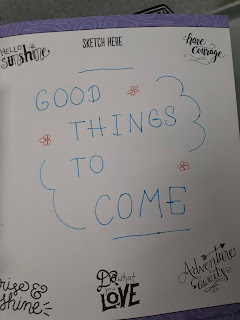 HELLO
SUNSHINE
SKETCH HERE
have
courage
GOOD
THINGS
TO
COME
rise &
shine
Do what
you
LOVE
Adventure
awaits